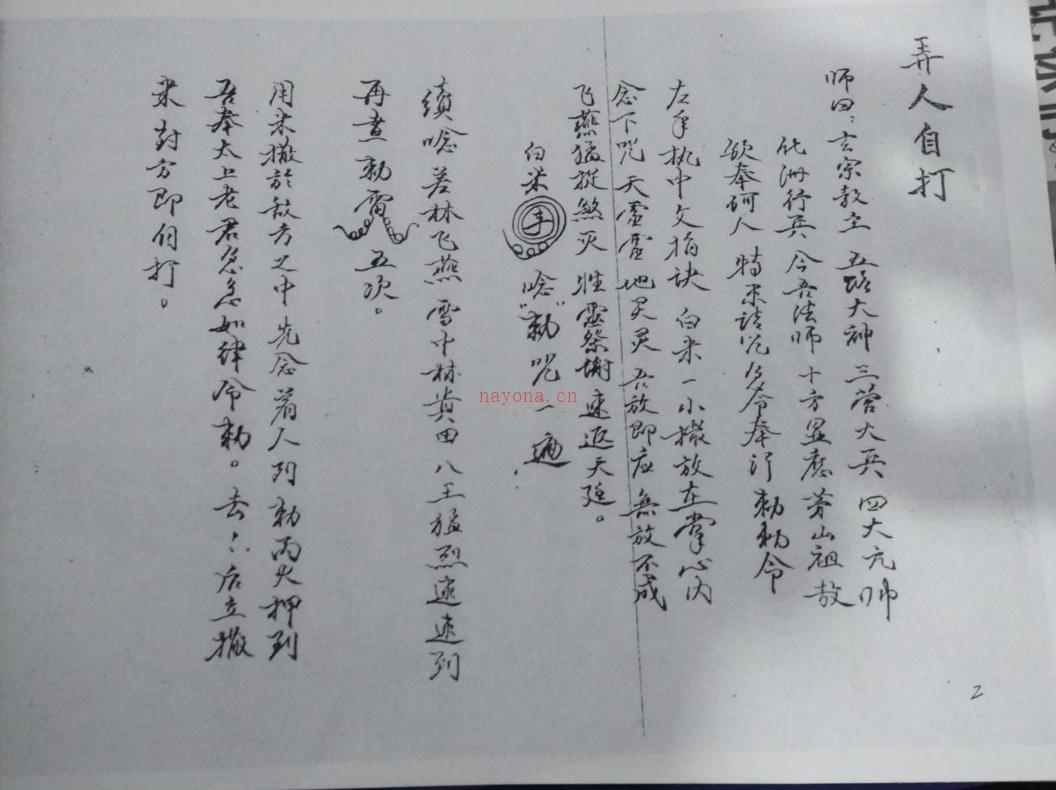 弄人自打
师曰：玄宗教主 五路大神 三营大兵 四大元帅
化洲行兵 今吾法师 十方显应 茅山祖教
欲奉 人 特来请咒 令奉行 勅勅令
左手执中文指诀 白米一小撮放在掌心内
念下咒 天灵灵 地灵灵 吾放即应 無放不成
飞燕猛捉煞灭 灵祭谢速返天廷。
白米 念"勅"咒一遍
續唸 差林飞燕 雪中林黄田 八王猛烈速速列
再畫勅 五次。
用米撒於敌方之中 先念着人列 勅丙火押到
吾奉太上老君急急如律令勅。去：后立撒
米对方即自打。
2
nayona.cn